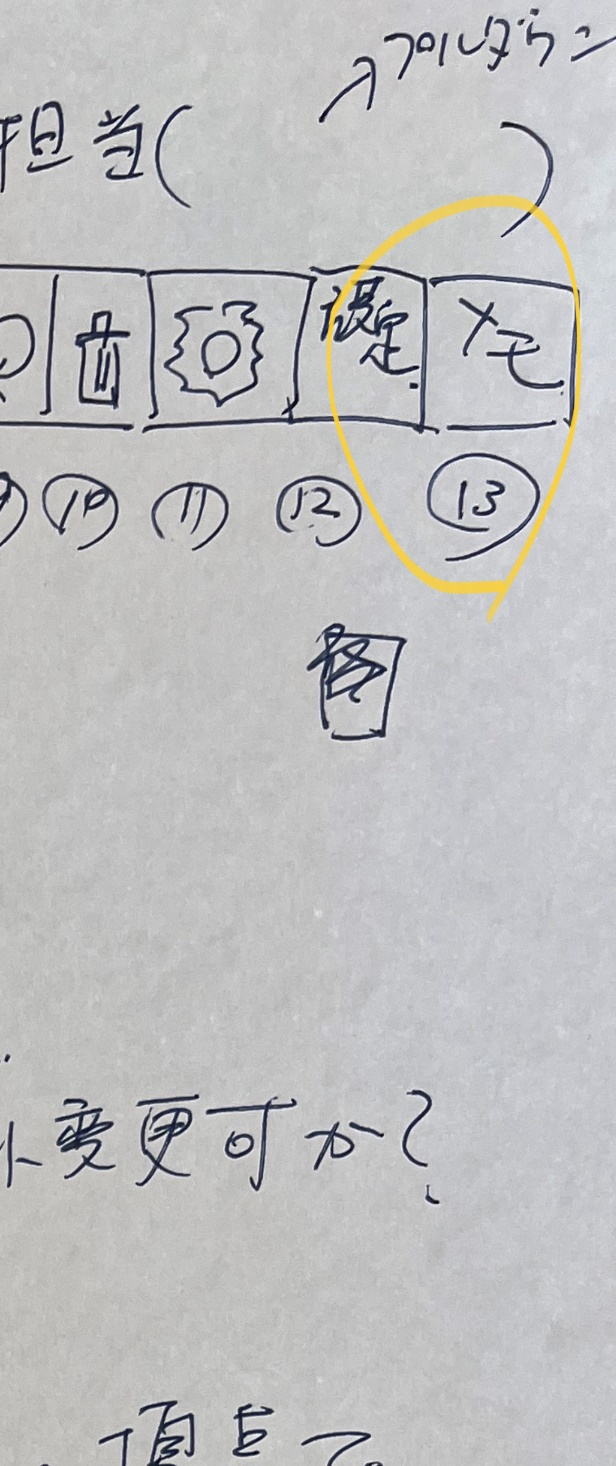 プルダウン
担当( )
設定 メモ
⑩ ⑪ ⑫ ⑬
変更可か?